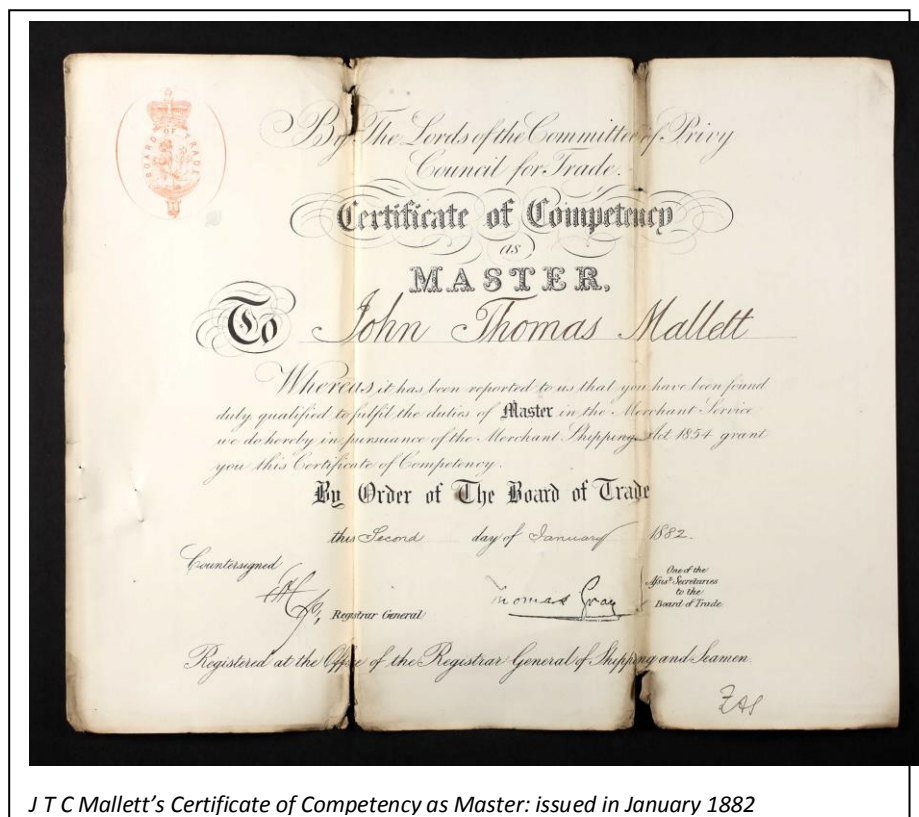 BOARD OF TRADE
By The Lords of the Committee of Privy
Council for Trade.
Certificate of Competency
as
MASTER,
To John Thomas Mallett
Whereas it has been reported to us that you have been found
duly qualified to fulfil the duties of Master in the Merchant Service
we do hereby in pursuance of the Merchant Shipping Act 1854 grant
you this Certificate of Competency.
By Order of The Board of Trade
this Second day of January 1882.
Countersigned
Registrar General
Thomas Gray
One of the
Assist. Secretaries
to the
Board of Trade
Registered at the Office of the Registrar General of Shipping and Seamen.
J T C Mallett’s Certificate of Competency as Master: issued in January 1882